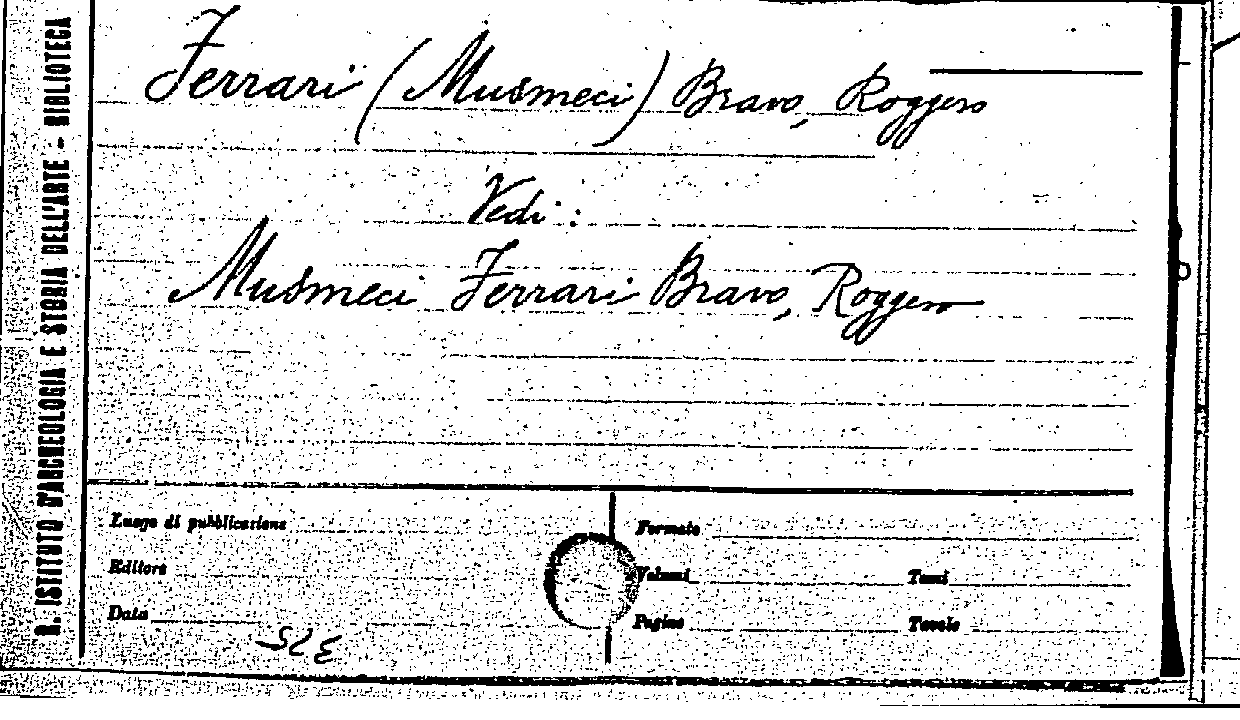 R. ISTITUTO D'ARCHEOLOGIA E STORIA DELL'ARTE - BIBLIOTECA
Ferrari (Musmeci) Bravo, Roggero
Vedi:
Musmeci Ferrari Bravo, Roggero
Luogo di pubblicazione
Formato
Editore
Volumi
Tomi
Data
Pagine
Tavole